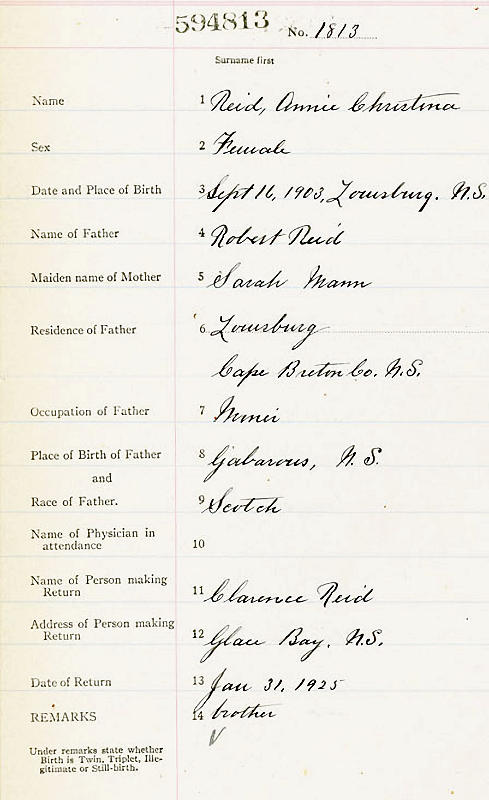 594813 No. 1813
Surname first
Name 1 Reid, Annie Christina
Sex 2 Female
Date and Place of Birth 3 Sept 16, 1903, Louisburg. N.S.
Name of Father 4 Robert Reid
Maiden name of Mother 5 Sarah Mann
Residence of Father 6 Louisburg
Cape Breton Co. N.S.
Occupation of Father 7 Miner
Place of Birth of Father 8 Gabarous, N.S.
and
Race of Father. 9 Scotch
Name of Physician in
attendance 10
Name of Person making
Return 11 Clarence Reid
Address of Person making
Return 12 Glace Bay. N.S.
Date of Return 13 Jan 31, 1925
REMARKS 14 brother
Under remarks state whether
Birth is Twin, Triplet, Ille-
gitimate or Still-birth.